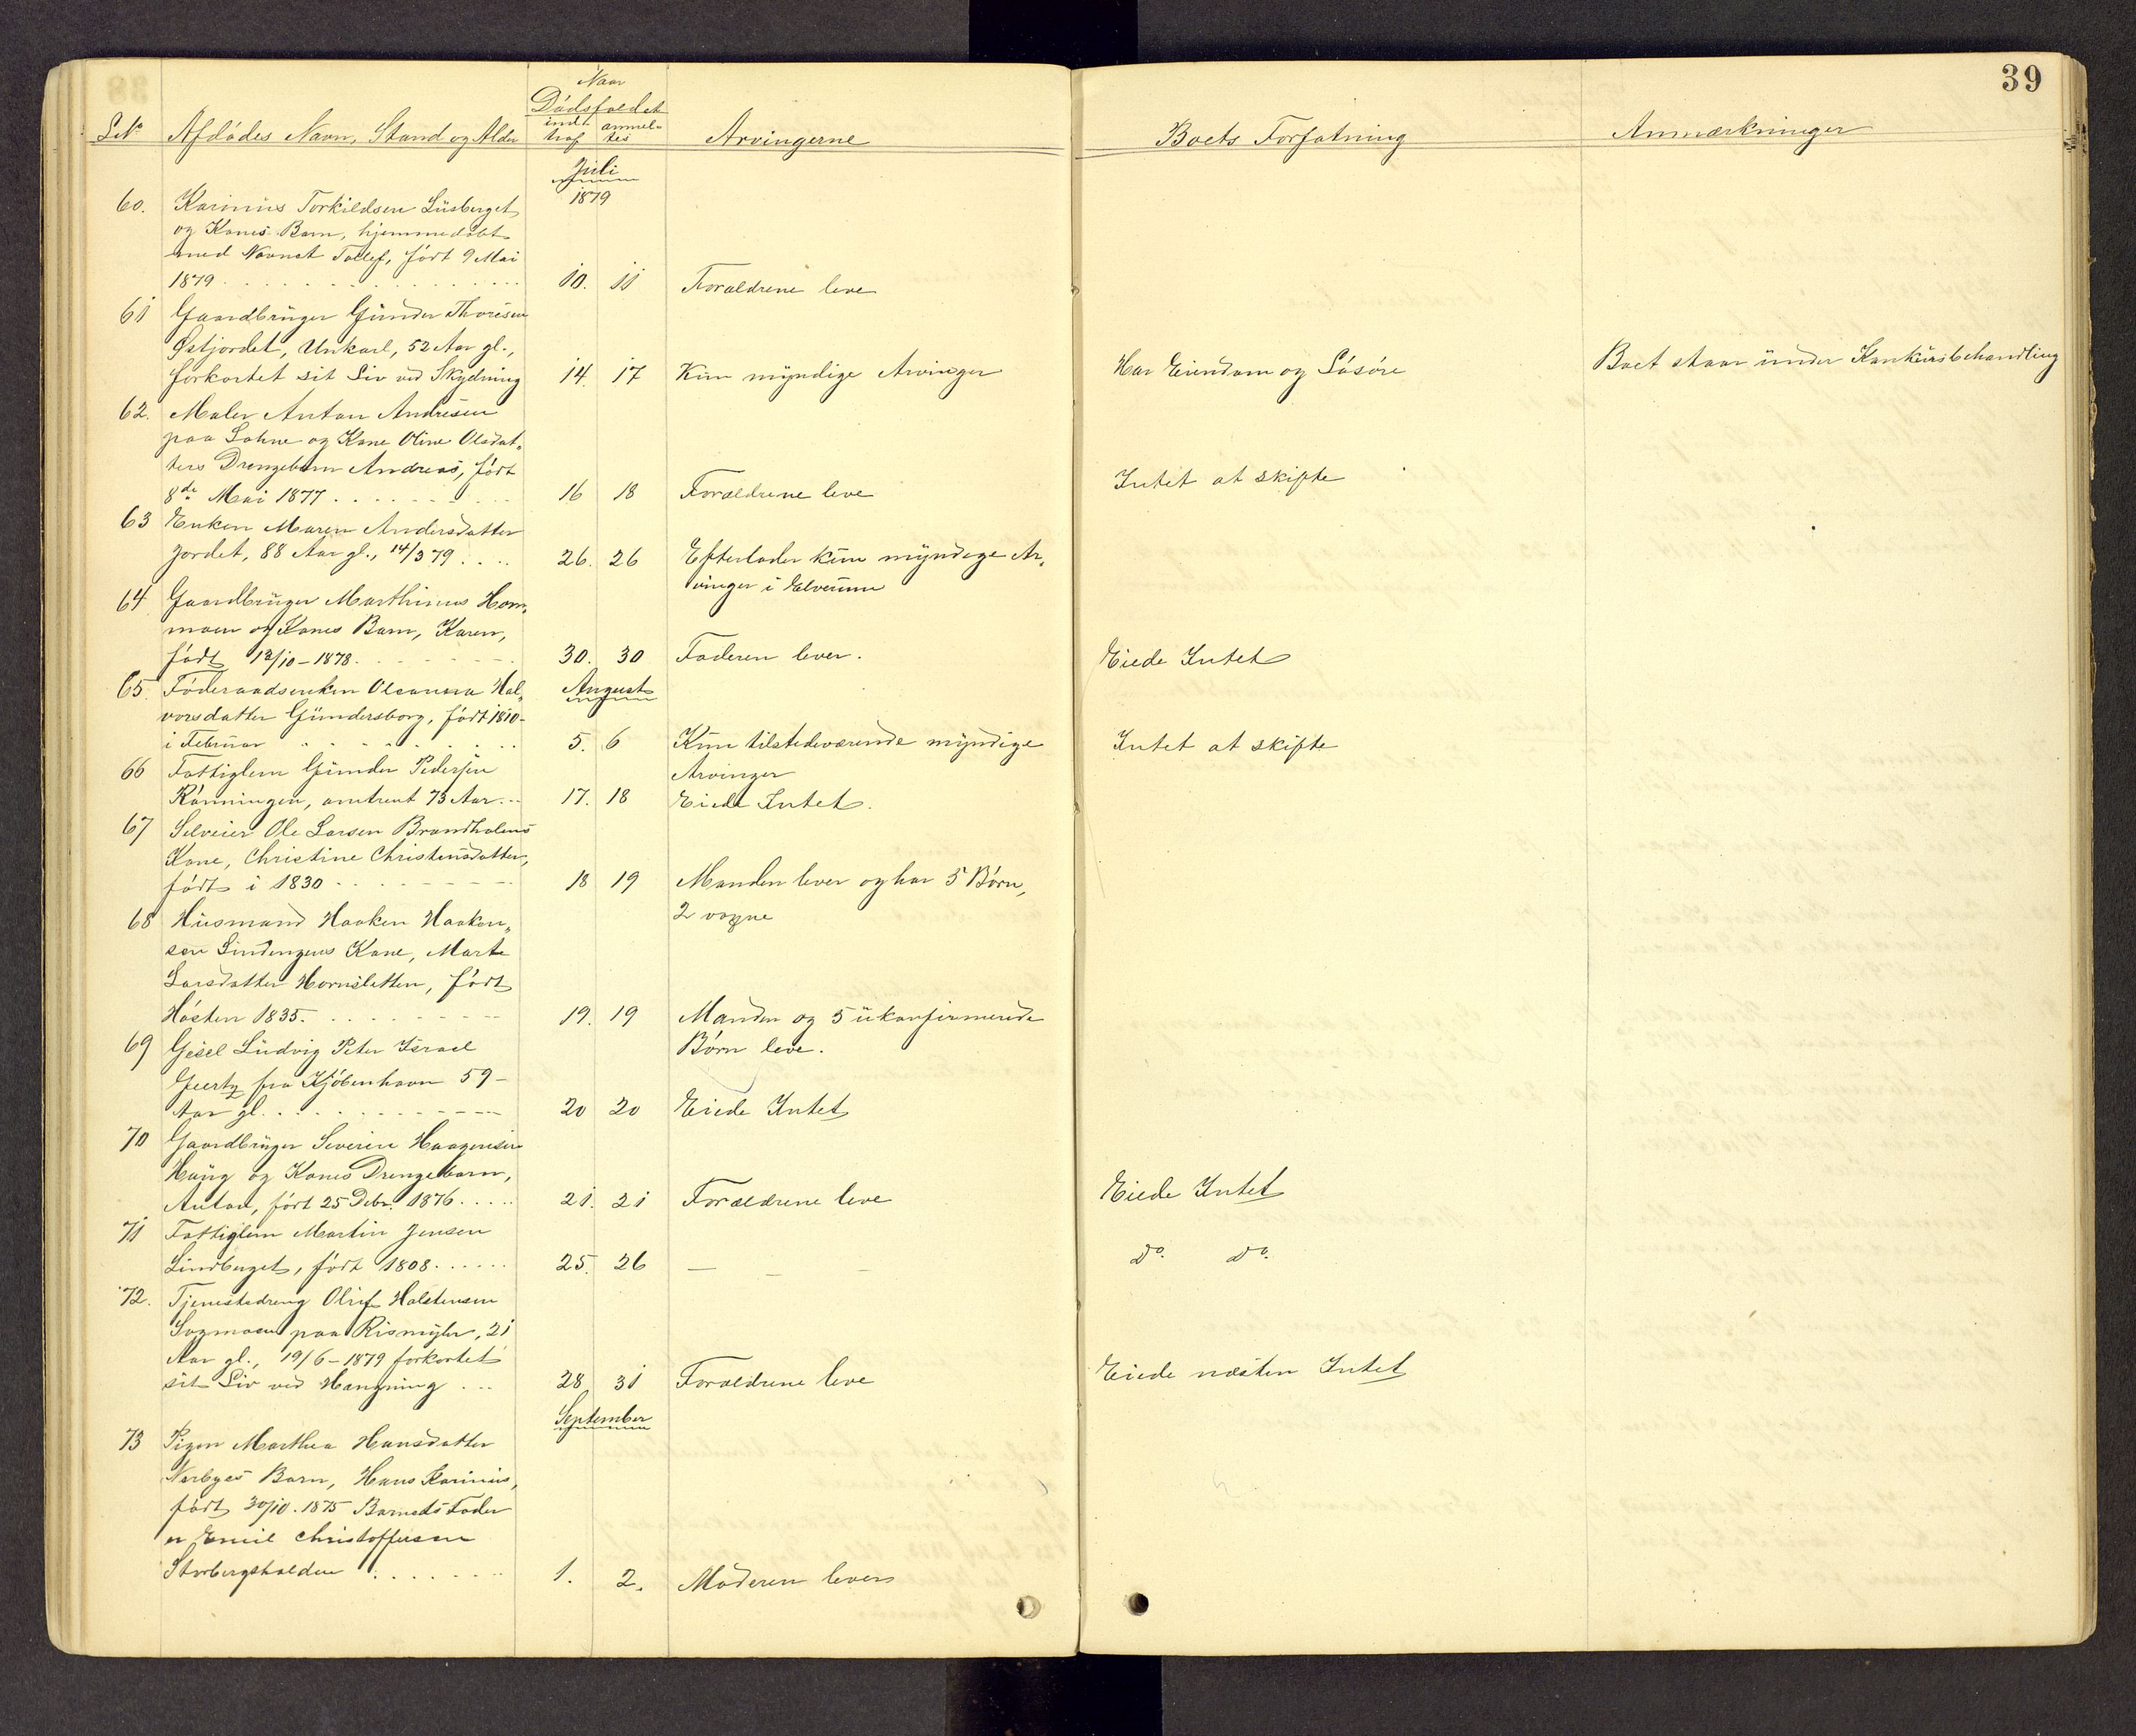 39
Naar
Dødsfaldet
LNo Afdødes Navn, Stand og Alder indtraf anmeldtes Arvingerne Boets Forfatning Anmærkninger
Juli
1879
60. Karinius Torkildsen Lusberget
og Kones Barn, hjemmedøbt
med Navnet Tollef, født 9 Mai
1879 . . . 10. 11 Forældrene leve
61 Gaardbruger Gunder Thoresen
Østjordet, Unkarl, 52 Aar gl.,
forkortet sit Liv ved Skydning 14. 17 Kun myndige Arvinger Har Eiendom og Løsøre Boet staar under Konkursbehandling
62. Maler Anton Andresen
paa Løhne og Kone Oline Olsdat-
ters Drengebarn Andreas, født
8de Mai 1877 . . . 16 18 Forældrene leve Intet at skifte
63 Enken Maren Andersdatter
Jordet, 88 Aar gl., 14/3 79 . . . 26. 26 Efterlader kun myndige Ar-
vinger i Elverum
64 Gaardbruger Marthinus Hom-
moen og Kones Barn, Karen,
født 13/10-1878. 30. 30 Faderen lever. Eiede Intet
August
65. Føderaadsenken Oleanna Hal-
vorsdatter Gundersborg, født 1810-
i Februar . . . 5. 6 Kun tilstedeværende myndige Intet at skifte
Arvinger
66 Fattiglem Gunder Pedersen
Rønningen, omtrent 73 Aar. 17. 18 Eiede Intet.
67 Selveier Ole Larsen Brandholens
Kone, Christine Christensdatter,
født i 1830 18 19 Manden lever og har 5 Børn,
2 voxne
68 Husmand Haaken Haaken-
sen Lindengens Kone, Marte
Larsdatter Hornsletten, født
Høsten 1835. 19. 19 Manden og 5 ukonfirmerede
Børn leve.
69 Gesel Ludvig Peter Israel
Geertz fra Kjøbenhavn 59-
Aar gl. . . . 20 20 Eiede Intet
70 Gaardbruger Severin Haagensen
Haug og Kones Drengebarn,
Anton, født 25 Debr. 1876 . . . 21. 21 Forældrene leve Eiede Intet
71 Fattiglem Martin Jensen
Lindberget, født 1808 . . . 25. 26 — — — Do. Do.
72. Tjenestedreng Oluf Halstensen
Sogmoen paa Rismyhr, 21
Aar gl., 19/6-1879 forkortet
sit Liv ved Hangning . . . 28 31 Forældrene leve Eiede næsten Intet
September
73 Pigen Marthea Hansdatter
Nerbyes Barn, Hans Karinius,
født 30/10. 1875 Barnets Fader
er Emil Christoffersen
Storbergshalden . . . 1. 2. Moderen lever